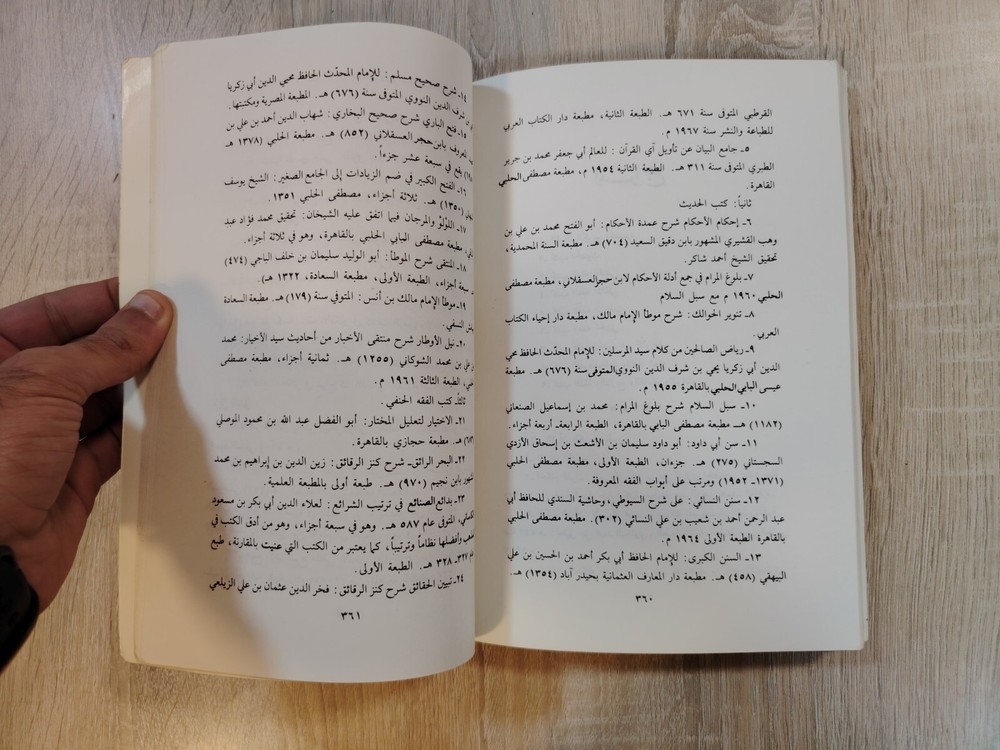 القرطبي المتوفى سنة ٦٧١ هـ. الطبعة الثانية، مطبعة دار الكتاب العربي
للطباعة والنشر سنة ١٩٦٧ م.
٥ـ جامع البيان عن تأويل آي القرآن : للعالم أبي جعفر محمد بن جرير
الطبري المتوفى سنة ٣١١ هـ. الطبعة الثانية ١٩٥٤ م، مطبعة مصطفى الحلبي
القاهرة.
ثانياً: كتب الحديث
٦ـ إحكام الأحكام شرح عمدة الأحكام: أبو الفتح محمد بن علي بن
وهب القشيري المشهور بابن دقيق السعيد (٧٠٤) هـ. مطبعة السنة المحمدية،
تحقيق الشيخ أحمد شاكر.
٧ـ بلوغ المرام في جمع أدلة الأحكام لابن حجر العسقلاني، مطبعة مصطفى
الحلبي ١٩٦٠ م مع سبل السلام
٨ـ تنوير الحوالك: شرح موطأ الإمام مالك، مطبعة دار إحياء الكتاب
العربي.
٩ـ رياض الصالحين من كلام سيد المرسلين: للإمام المحدّث الحافظ محي
الدين أبي زكريا يحيى بن شرف الدين النووي المتوفى سنة (٦٧٦) هـ. مطبعة
عيسى البابي الحلبي بالقاهرة ١٩٥٥ م.
١٠ـ سبل السلام شرح بلوغ المرام: محمد بن إسماعيل الصنعاني
(١١٨٢) هـ مطبعة مصطفى البابي بالقاهرة، الطبعة الرابعة، أربعة أجزاء.
١١ـ سنن أبي داود: أبو داود سليمان بن الأشعث بن إسحاق الأزدي
السجستاني (٢٧٥) هـ. جزءان، الطبعة الأولى، مطبعة مصطفى الحلبي
(١٣٧١ـ ١٩٥٢) ومرتب على أبواب الفقه المعروفة.
١٢ـ سنن النسائي: على شرح السيوطي، وحاشية السندي للحافظ أبي
عبد الرحمن أحمد بن شعيب بن علي النسائي (٣٠٢). مطبعة مصطفى الحلبي
بالقاهرة الطبعة الأولى ١٩٦٤ م.
١٣ـ السنن الكبرى: للإمام الحافظ أبي بكر أحمد بن الحسين بن علي
البيهقي (٤٥٨) هـ. مطبعة دار المعارف العثمانية بحيدر آباد (١٣٥٤) هـ.
٣٦٠
١٤ـ شرح صحيح مسلم: للإمام المحدّث الحافظ محيي الدين أبي زكريا
شرف الدين النووي المتوفى سنة (٦٧٦) هـ. المطبعة المصرية ومكتبتها.
١٥ـ فتح الباري شرح صحيح البخاري: شهاب الدين أحمد بن علي بن
المعروف بابن حجر العسقلاني (٨٥٢) هـ. مطبعة الحلبي (١٣٧٨ هـ
يقع في سبعة عشر جزءاً.
١٦ـ الفتح الكبير في ضم الزيادات إلى الجامع الصغير: الشيخ يوسف
(١٣٥٠) هـ. ثلاثة أجزاء، مصطفى الحلبي ١٣٥١.
١٧ـ اللؤلؤ والمرجان فيما اتفق عليه الشيخان: تحقيق محمد فؤاد عبد
مطبعة مصطفى البابي الحلبي بالقاهرة، وهو في ثلاثة أجزاء.
١٨ـ المنتقى شرح الموطأ: أبو الوليد سليمان بن خلف الباجي (٤٧٤)
سبعة أجزاء، الطبعة الأولى، مطبعة السعادة، ١٣٢٢ هـ).
١٩ـ موطأ الإمام مالك بن أنس: المتوفي سنة (١٧٩) هـ. مطبعة السعادة
٢٠ـ نيل الأوطار شرح منتقى الأخبار من أحاديث سيد الأخيار: محمد
بن علي بن محمد الشوكاني (١٢٥٥) هـ. ثمانية أجزاء، مطبعة مصطفى
الطبعة الثالثة ١٩٦١ م.
ثالثاً: كتب الفقه الحنفي.
٢١ـ الاختيار لتعليل المختار: أبو الفضل عبد الله بن محمود الموصلي
هـ. مطبعة حجازي بالقاهرة.
٢٢ـ البحر الرائق ـ شرح كنز الرقائق: زين الدين بن إبراهيم بن محمد
بابن نجيم (٩٧٠) هـ. طبعة أولى بالمطبعة العلمية.
٢٣ـ بدائع الصنائع في ترتيب الشرائع: لعلاء الدين أبي بكر بن مسعود
المتوفى عام ٥٨٧ هـ. وهو في سبعة أجزاء، وهو من أدق الكتب في
وأفضلها نظاماً وترتيباً، كما يعتبر من الكتب التي عنيت بالمقارنة، طبع
٣٢٧ـ ٣٢٨ هـ. الطبعة الأولى.
٢٤ـ تبيين الحقائق شرح كنز الرقائق: فخر الدين عثمان بن علي الزيلعي
٣٦١